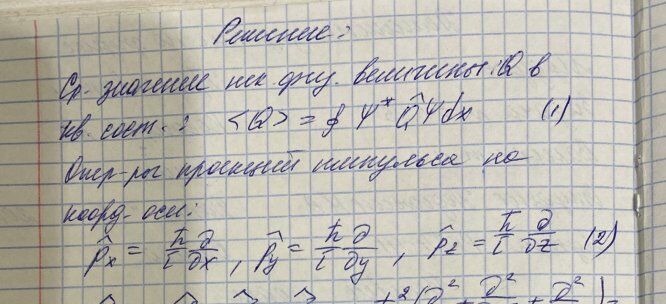 Решение:
Ср. значение нек физ. величины Q в
кв. сост.: <Q> = ∮ Ψ* Q̂ Ψ dx (1)
Опер-ры проекций импульса на
коорд. оси:
p̂x = ħ/i ∂/∂x, p̂y = ħ/i ∂/∂y, p̂z = ħ/i ∂/∂z (2)